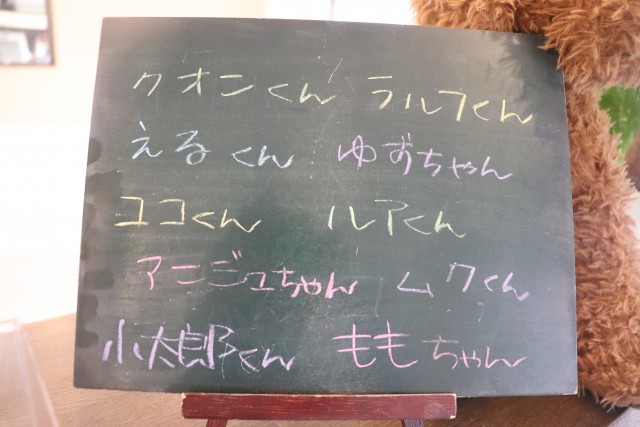 クオンくん ラルフくん
える くん ゆずちゃん
ココくん ルアくん
アンジュちゃん ムクくん
小太郎くん ももちゃん